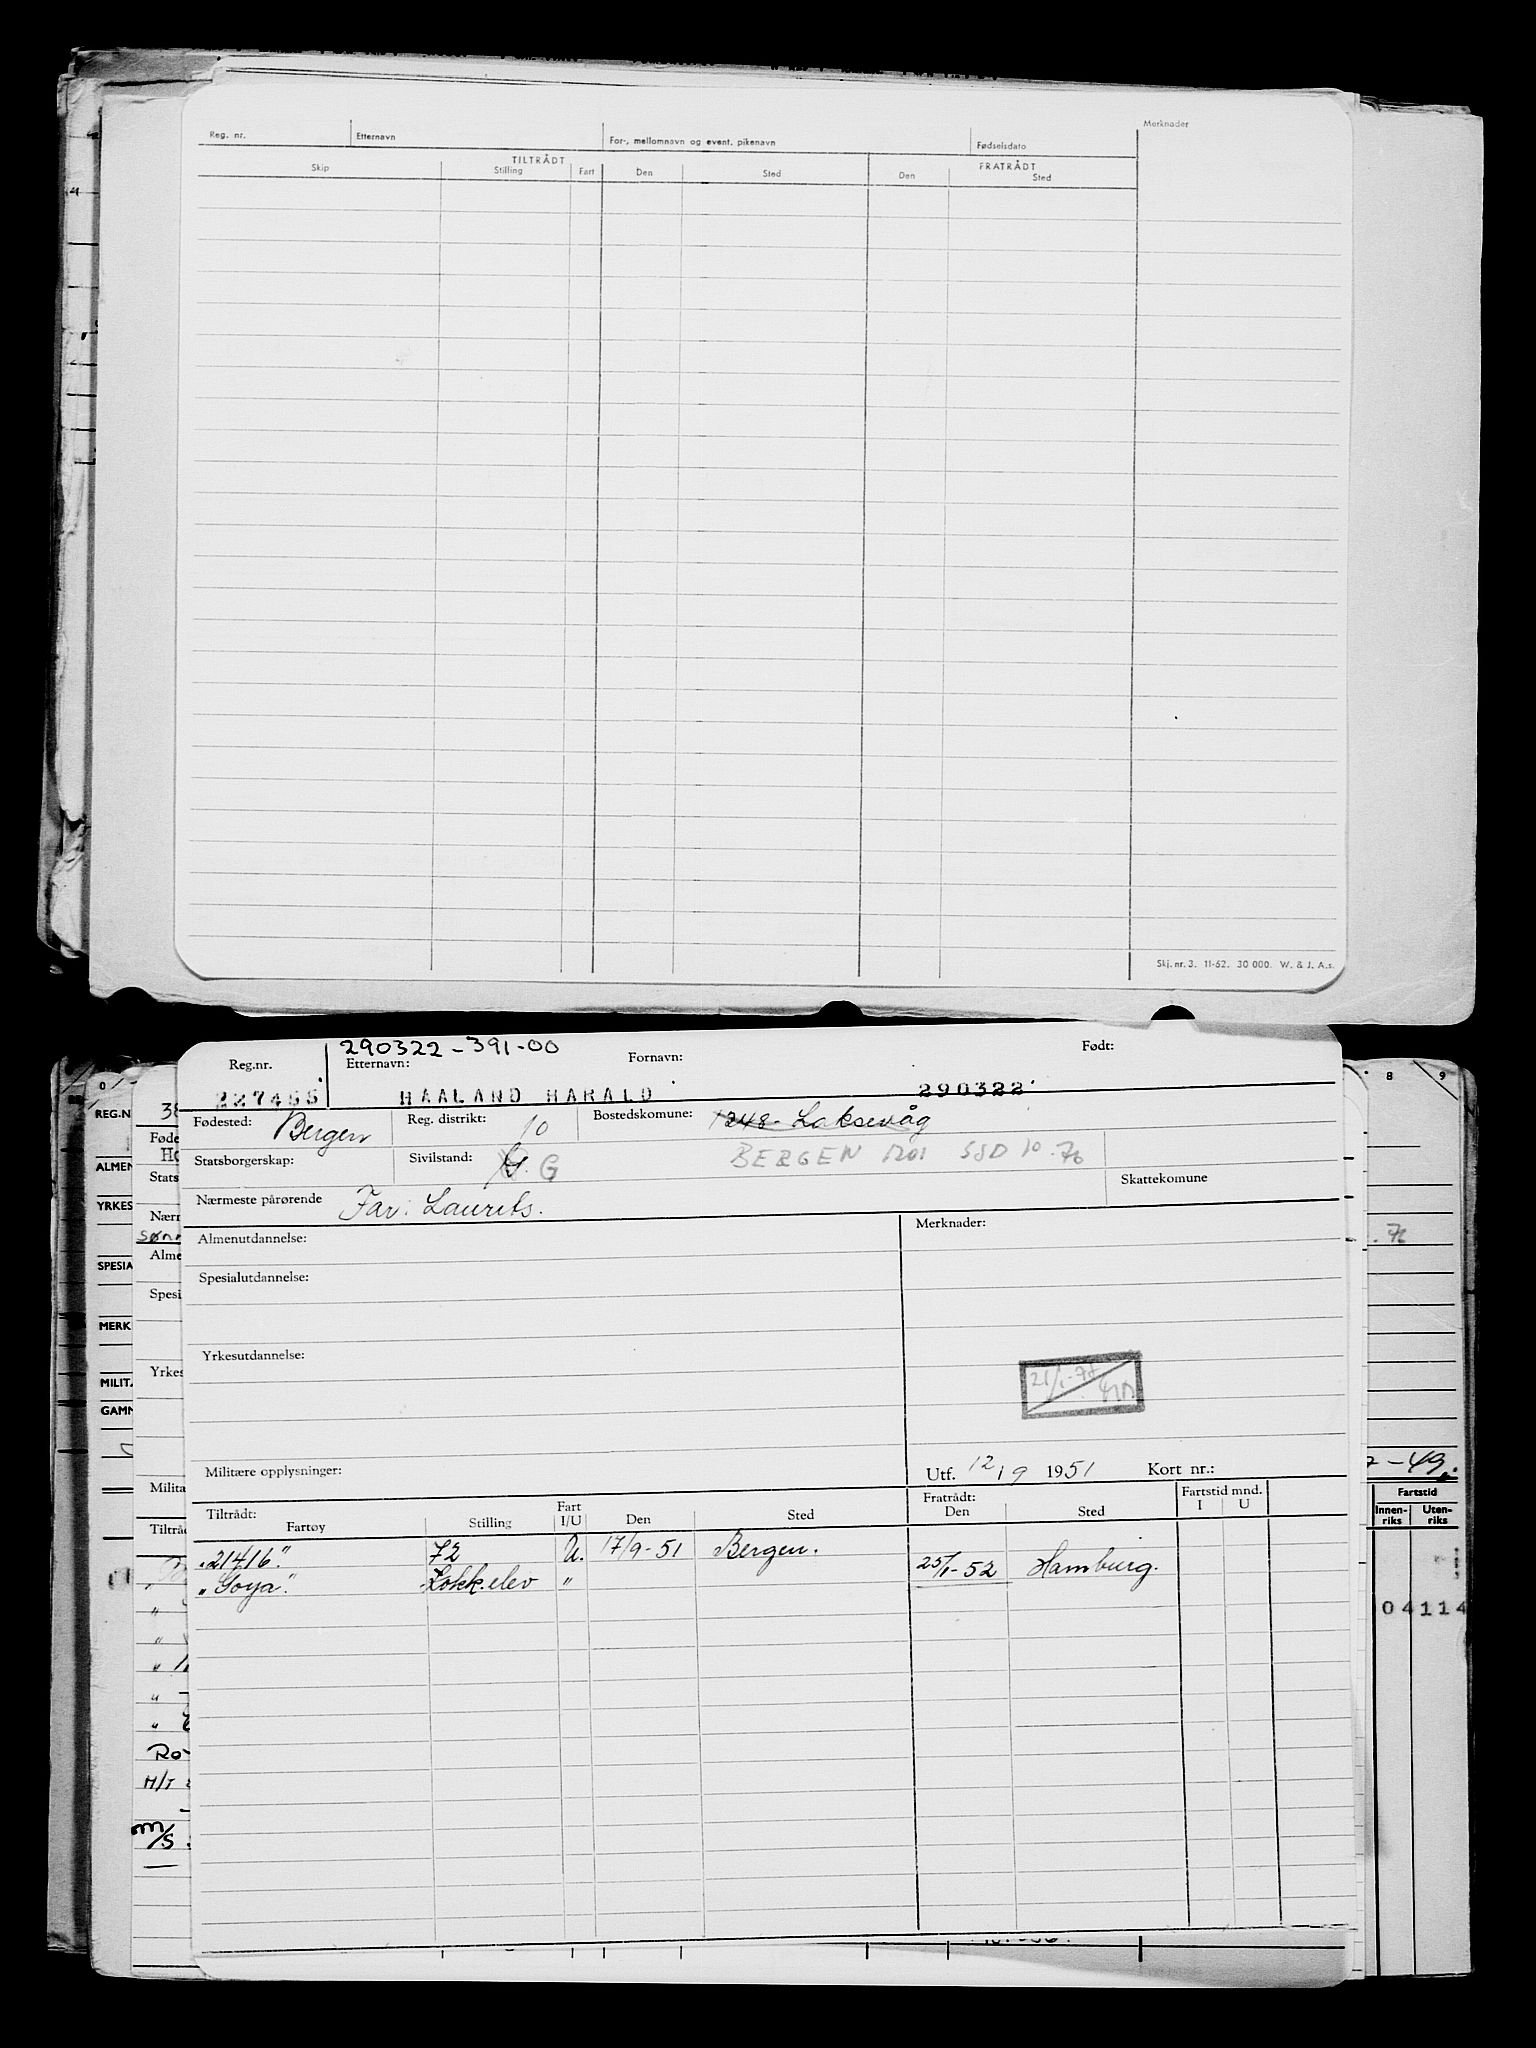 Reg. nr. Etternavn For-, mellomnavn og event. pikenavn Fødselsdato Merknader
TILTRÅDT FRATRÅDT
Skip Stilling Fart Den Sted Den Sted
Skj. nr. 3. 11-62. 30 000. W. & J. A.s.
290322-391-00
Reg.nr. Etternavn: Fornavn: Født:
227455 HAALAND HARALD 290322
Fødested: Bergen Reg. distrikt: 10 Bostedskomune: 1248- Laksevåg
Statsborgerskap: Sivilstand: G BERGEN 1201 SSD 10.76
Nærmeste pårørende Far: Laurits. Skattekomune
Almenutdannelse: Merknader:
Spesialutdannelse:
Yrkesutdannelse:
Militære opplysninger: Utf. 12/9 1951 Kort nr.:
Tiltrådt: Fart Fratrådt: Fartstid mnd.
Fartøy Stilling I/U Den Sted Den Sted I U
"21416". 72 U. 17/9-51 Bergen.
"Goya". Kokk.elev " 25/1-52 Hamburg.
REG.N
ALMEN
YRKES
SPESIA
MERK
MILITÆ
GAMM
38
Føde
Stats
Nærm
Alme
Spesi
Yrkes
Milita
Tiltråd
Ro
H/T
M/S
8 9
. 76
-49.
Fartstid
Innen-riks Uten-riks
04114